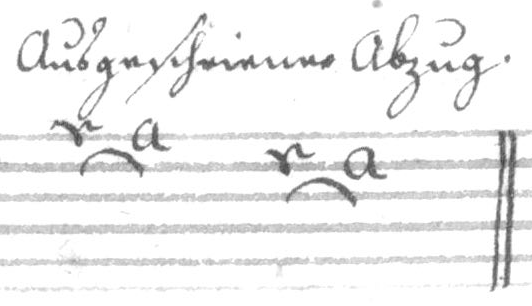 Ausgeschriener Abzug.
r a r a